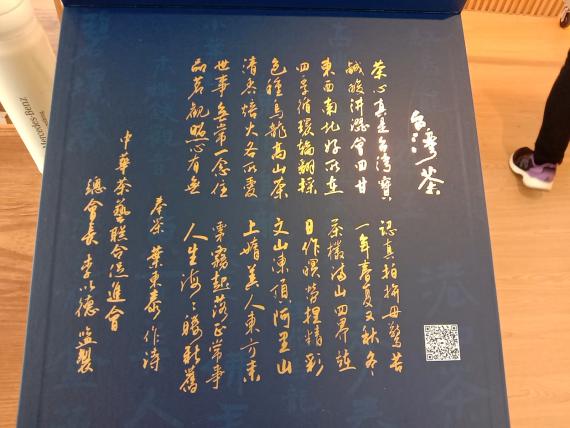 台灣茶
茶心真是台灣寶 認真拍拚毋驚苦
鹹酸汫澀會回甘 一年春夏又秋冬
東西南北好所在 茶欉滿山四界
四季循環輪翻採 日作暝勞捏精彩
色種烏龍高山茶 文山凍頂阿里山
清香焙火各所愛 上媠美人東方來
世事無常一念住 雲霧起落正常事
品茗觀照心有無 人生海海
奉茶 葉東泰 作詩
中華茶藝聯合促進會
總會長 李以德 監製
Mercedes-Benz